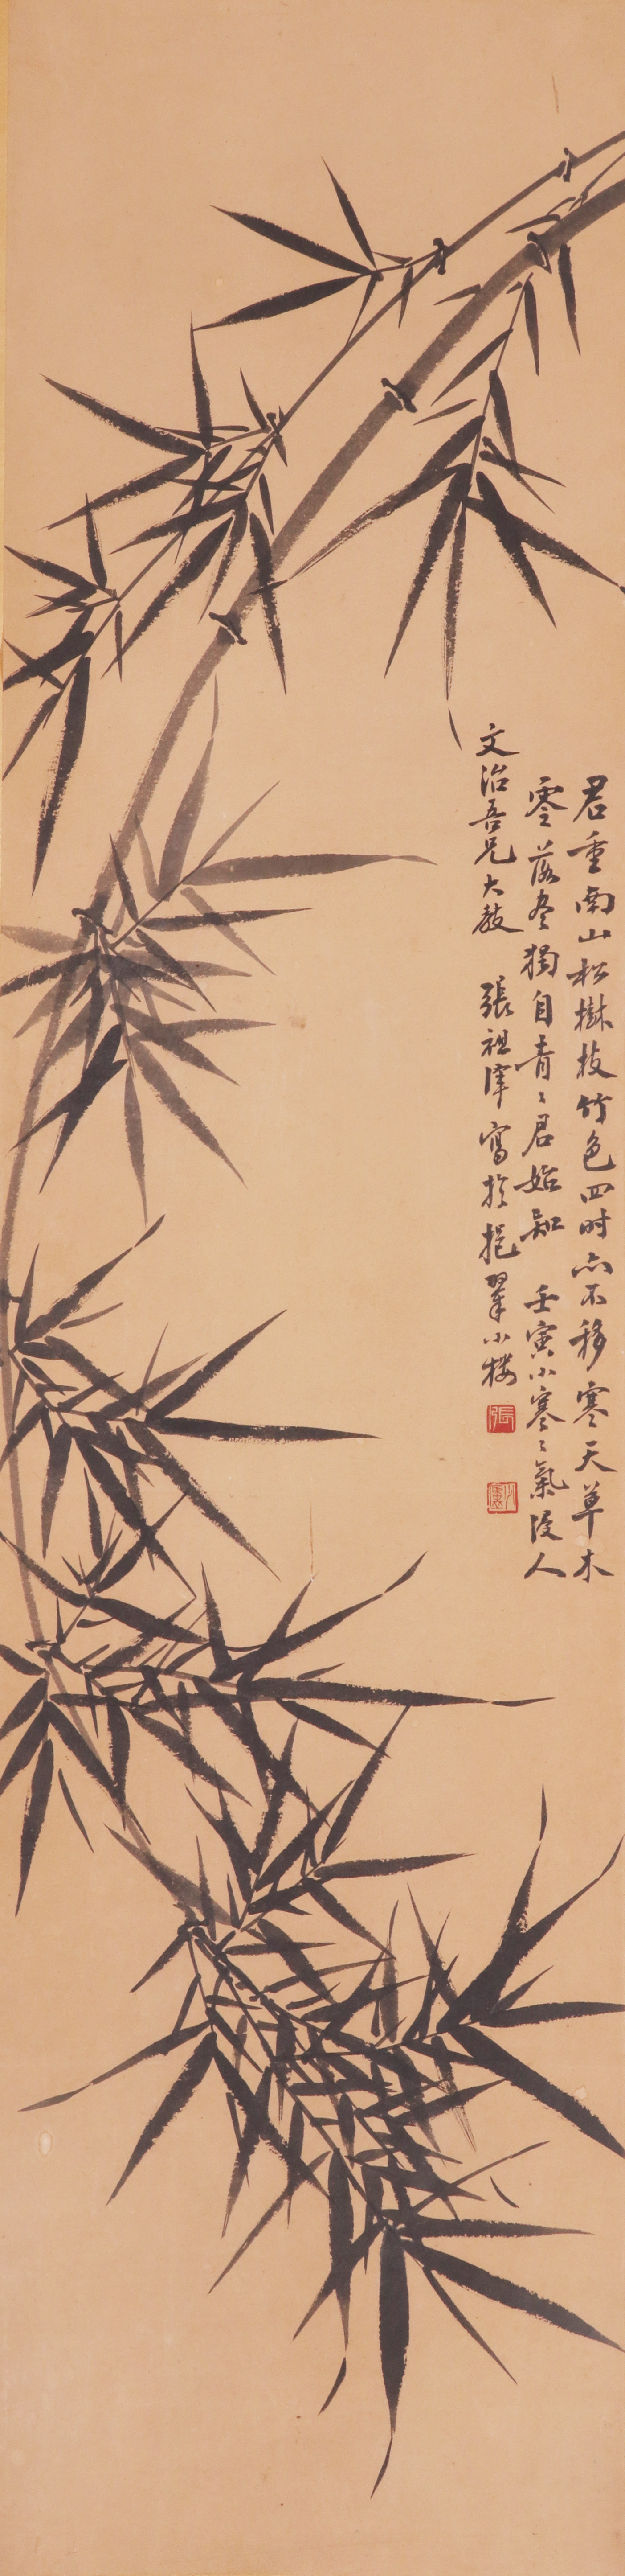 君重南山松樹枝竹色四时亦不移寒天草木
零落尽獨自青〻君始知 壬寅小寒〻氣侵人
文治吾兄大教 張祖 寫於挹翠小楼
張